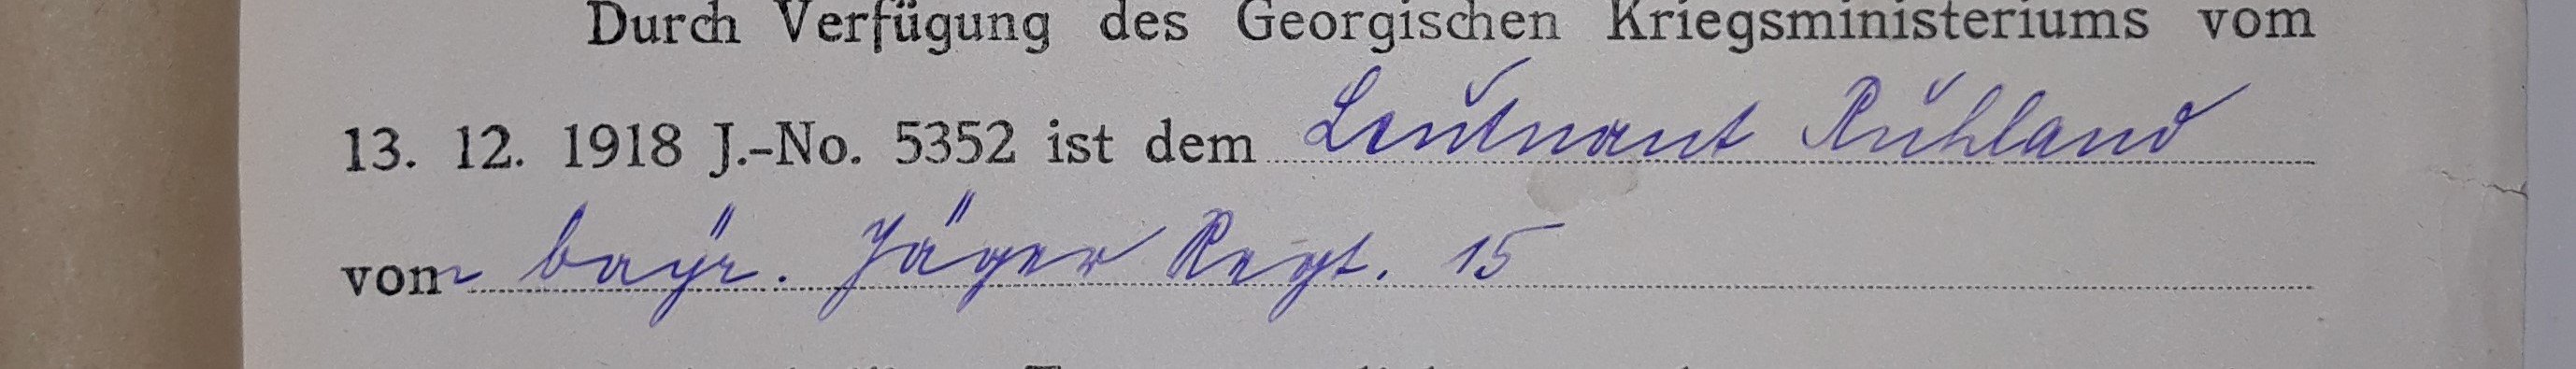 Durch Verfügung des Georgischen Kriegsministeriums vom
13. 12. 1918 J.-No. 5352 ist dem Leutnant Ruhland
vom bayr. Jäger Regt. 15